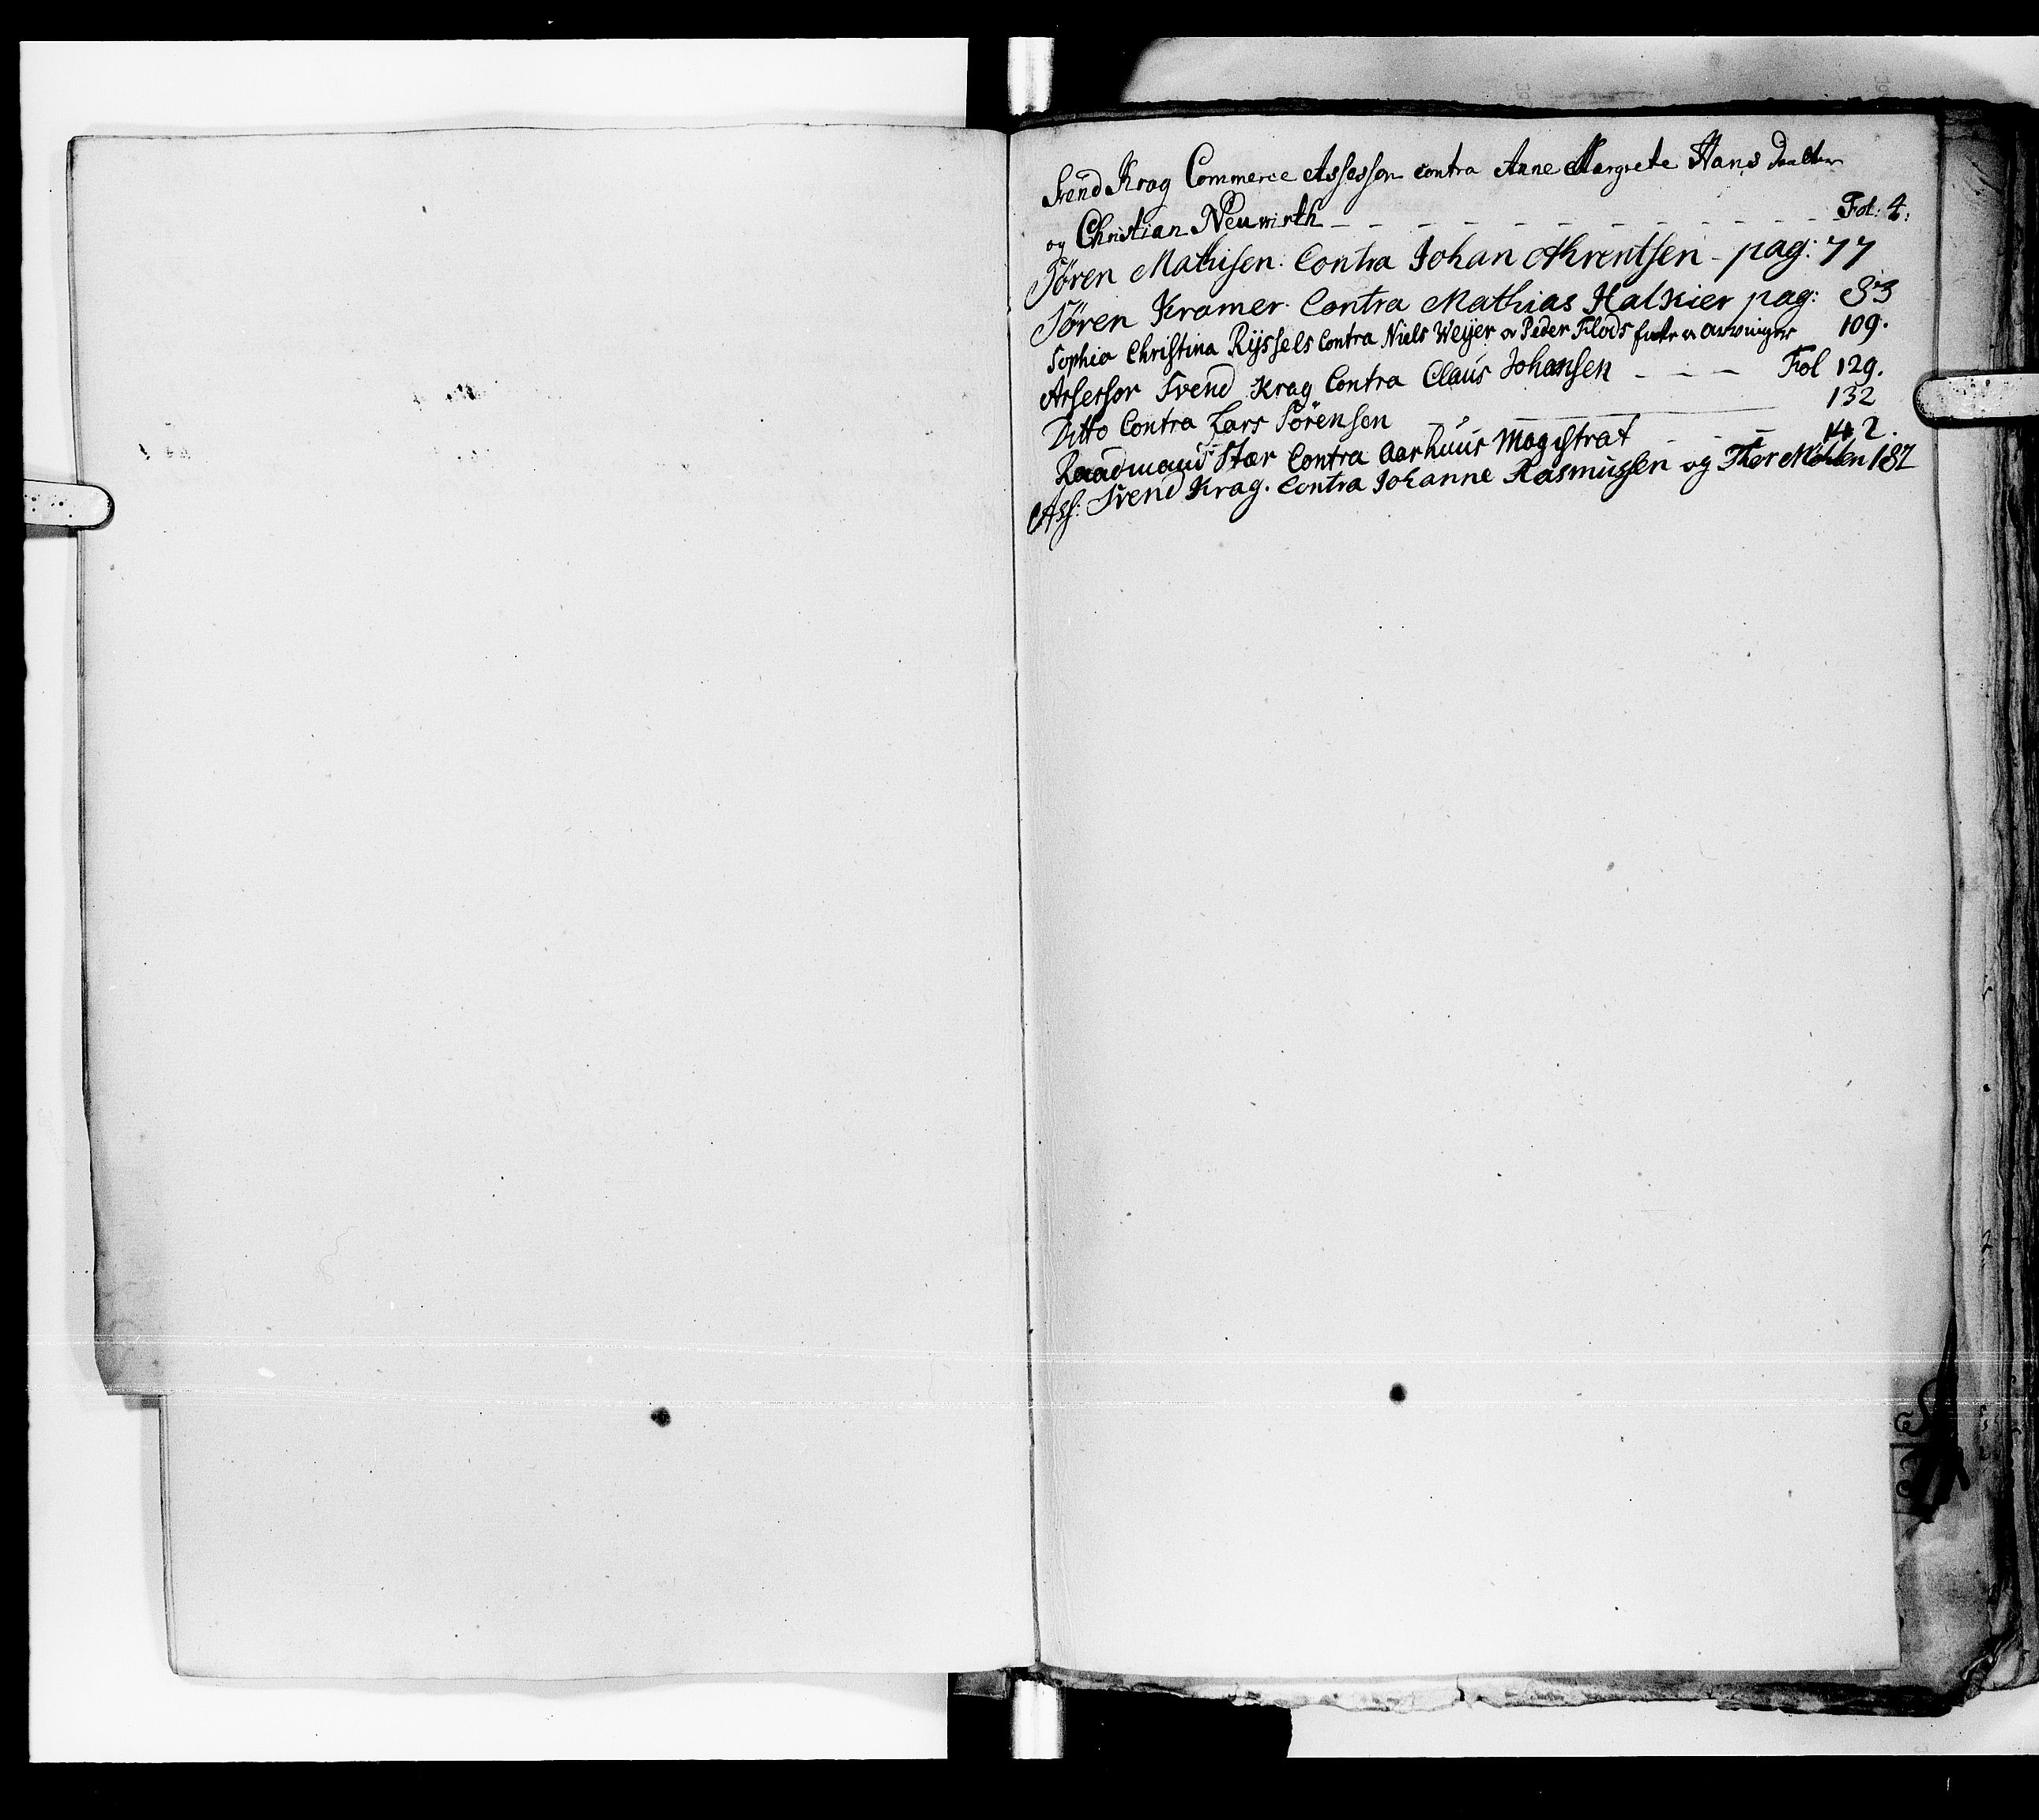 Svend Krag Commerce Assessor contra Anne Margrete Hans Daatter
og Christian Neuwirth - - - - - - - - - - - - Fol: 4:
Søren Mathisen: Contra Johan Ahrentsen - pag: 77
Søren Kramer Contra Mathias Halkier pag: 83
Sophia Christina Rÿssels Contra Niels Weÿer og Peder Flods arvinger 109.
Assessor Svend Krag Contra Claus Johansen - - - Fol 129.
Ditto Contra Lars Sörensen 132
Raadmand Stær Contra Aarhuus Magistrat - - - 142.
Ass: Svend Krag. Contra Johanne Rasmussen og Thor Möhlen 187